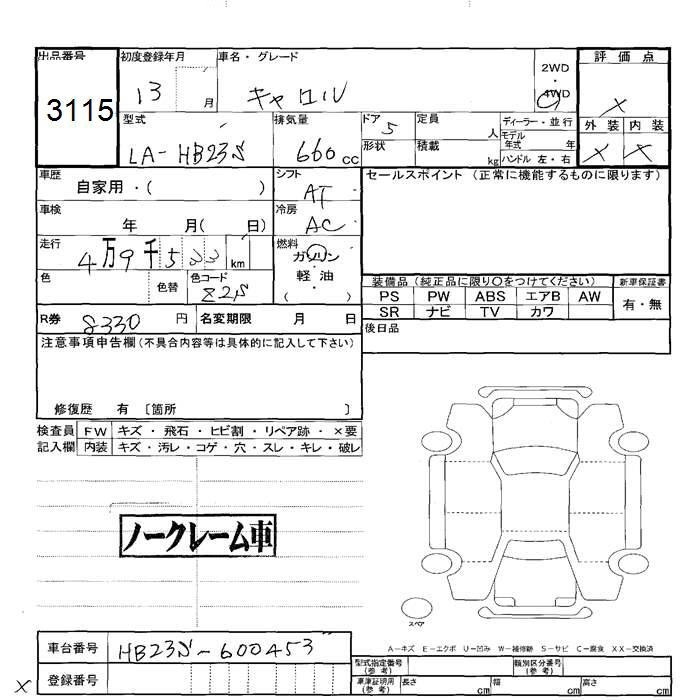 出品番号 初度登録年月 車名・グレード 2WD ・ 4WD 評価点
3115 13 月 キャロル X
外装 内装
X X
型式 排気量 ドア 定員 ディーラー・並行
LA-HB23S 660 cc 5 人 モデル年式 年
形状 積載 kg ハンドル 左・右
車歴 自家用・( ) シフト AT セールスポイント(正常に機能するものに限ります)
車検 年 月( 日) 冷房 AC
走行 4万9千533 km 燃料 ガソリン・軽油・( )
色 色替 色コード Z2S
装備品(純正品に限り○をつけてください) 新車保証書
PS PW ABS エアB AW 有・無
SR ナビ TV カワ
R券 8330 円 名変期限 月 日 後日品
注意事項申告欄(不具合内容等は具体的に記入して下さい)
修復歴 有 〔箇所 〕
検査員 FW キズ・飛石・ヒビ割・リペア跡・×要
記入欄 内装 キズ・汚レ・コゲ・穴・スレ・キレ・破レ
ノークレーム車
スペア
A-キズ E-エクボ U-凹み W-補修跡 S-サビ C-腐食 XX-交換済
車台番号 HB23S-600453
登録番号
型式指定番号(参考) 類別区分番号(参考)
車庫証明用(参考) 長さ cm 幅 cm 高さ cm
X